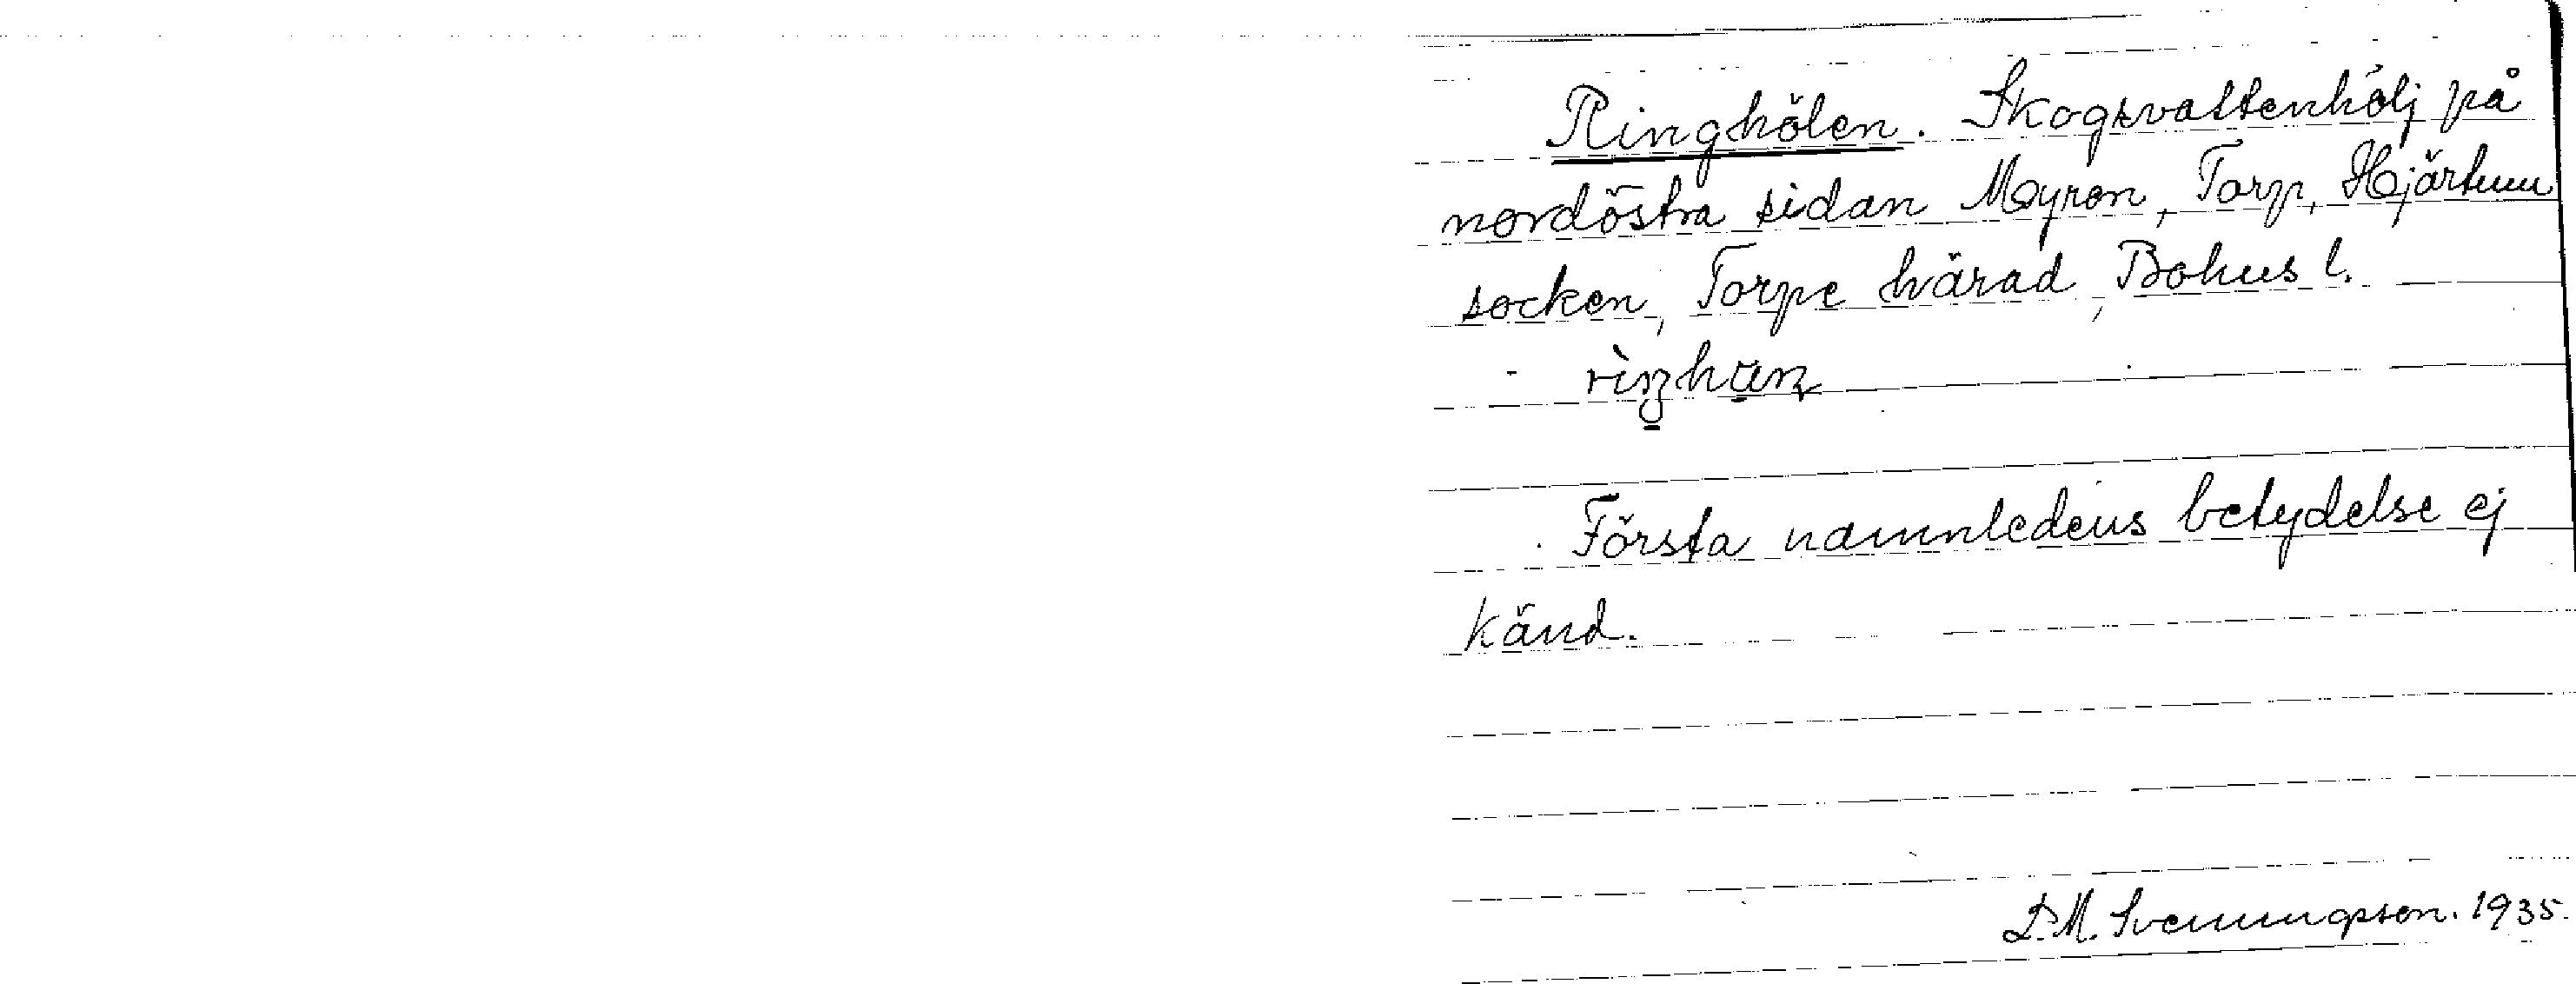 Ringhölen. Skogsvattenhölj på
nordöstra sidan Moyren, Torp, Hjärtum
socken, Torpe härad, Bohus l.
Första namnledens betydelse ej
känd.
D.M. Svenningsson. 1935.